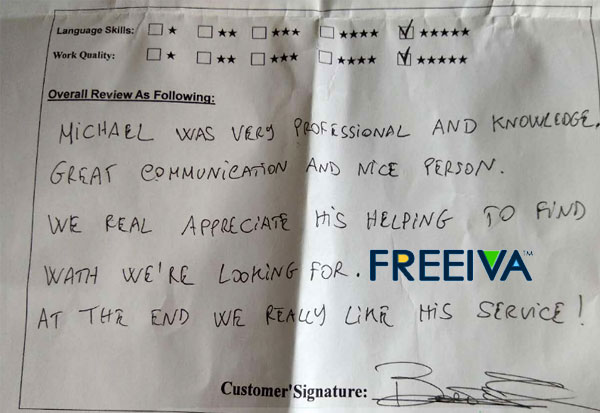 Language Skills: ☐ ★ ☐ ★★ ☐ ★★★ ☐ ★★★★ ☑ ★★★★★
Work Quality: ☐ ★ ☐ ★★ ☐ ★★★ ☐ ★★★★ ☑ ★★★★★
Overall Review As Following:
MICHAEL WAS VERY PROFESSIONAL AND KNOWLEDGE.
GREAT COMMUNICATION AND NICE PERSON.
WE REAL APPRECIATE HIS HELPING TO FIND
WATH WE'RE LOOKING FOR. FREEIVA™
AT THE END WE REALLY LIKE HIS SERVICE!
Customer'Signature: